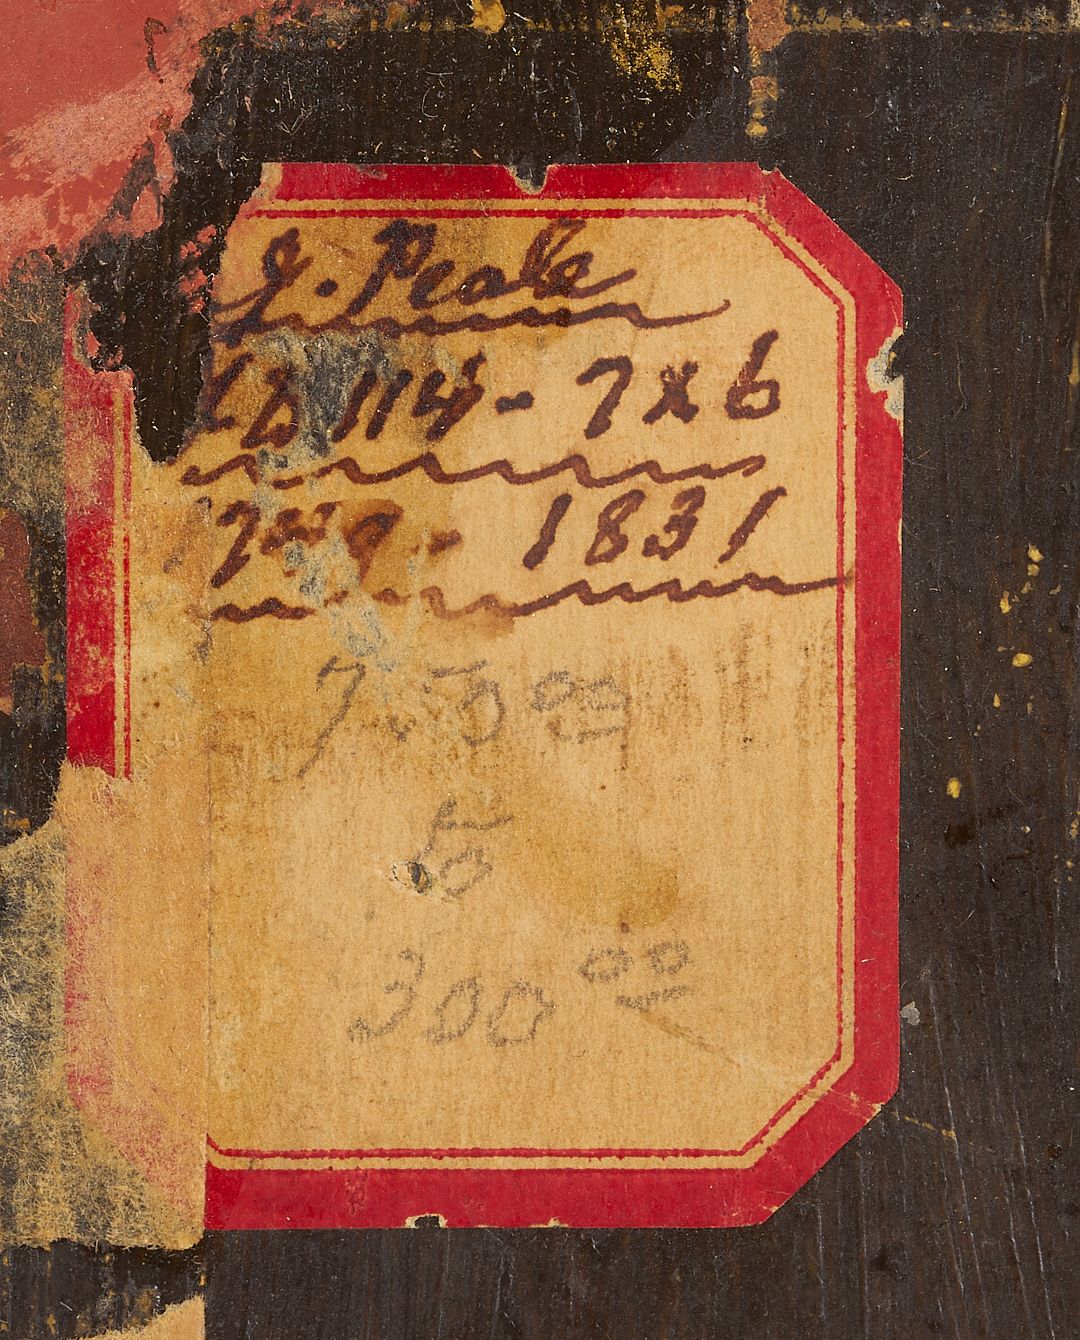 J. Peale
114 - 7x6
- 1831
7.50 00
50
300 00